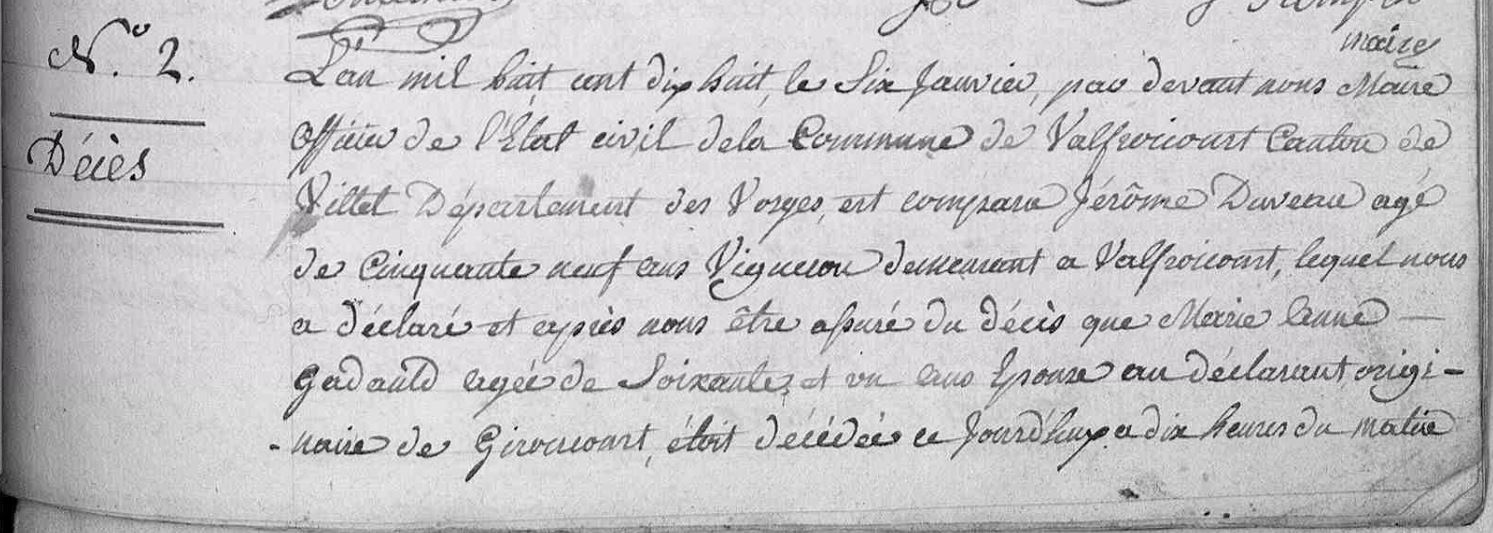 maire
N.° 2.
Décès
L'an mil huit cent dix huit, le Six Janvier, par devant nous Maire
officier de l'État civil dela Commune de Valfroicourt Canton de
Vittel Département des Vosges, est comparu Jérôme Duveau agé
de Cinquante neuf ans Vigneron demeurant a Valfroicourt, lequel nous
a déclaré et après nous être assuré du décès que Marie anne —
Gadauld agée de Soixante et un ans Epouse au déclarant origi-
-naire de Girocourt, étoit décédée ce Jourd'huy a dix heures du matin